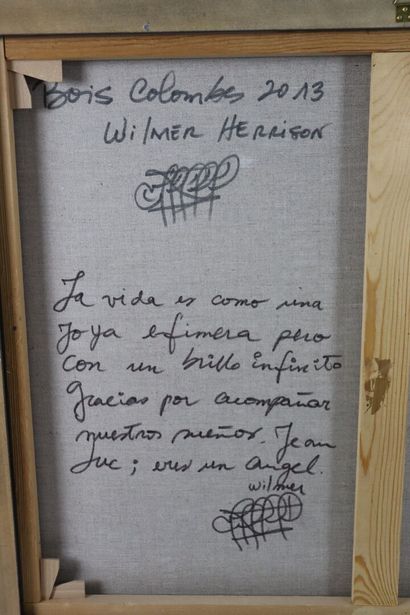 Bois Colombes 2013
Wilmer Herrison
La vida es como una
joya efimera pero
con un brillo infinito
Gracias por acompañar
nuestros sueños. Jean
Luc; eres un angel.
Wilmer